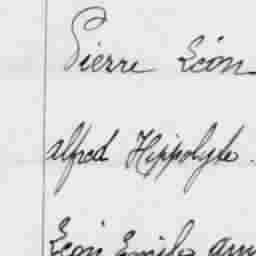 Pierre Léon
Alfred Hippolyte.
Léon Emile